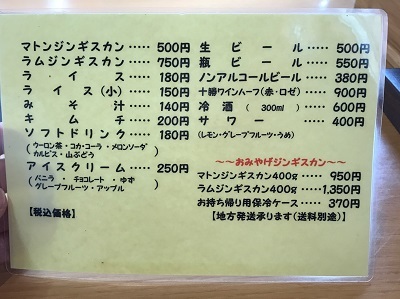 マトンジンギスカン・・・・・500円
ラムジンギスカン・・・・・750円
ライス・・・・・180円
ライス(小)・・・・・150円
みそ汁・・・・・140円
キムチ・・・・・200円
ソフトドリンク・・・・・180円
(ウーロン茶・コカ・コーラ・メロンソーダ
カルピス・山ぶどう)
アイスクリーム・・・・・250円
(バニラ・チョコレート・ゆず
グレープフルーツ・アップル)
【税込価格】
生ビール・・・・・500円
瓶ビール・・・・・550円
ノンアルコールビール・・・・380円
十勝ワインハーフ(赤・ロゼ)・・・・900円
冷酒(300ml)・・・・・600円
サワー・・・・・400円
(レモン・グレープフルーツ・うめ)
～～おみやげジンギスカン～～
マトンジンギスカン400g・・・・950円
ラムジンギスカン400g・・・・1,350円
お持ち帰り用保冷ケース・・・・370円
【地方発送承ります(送料別途)】